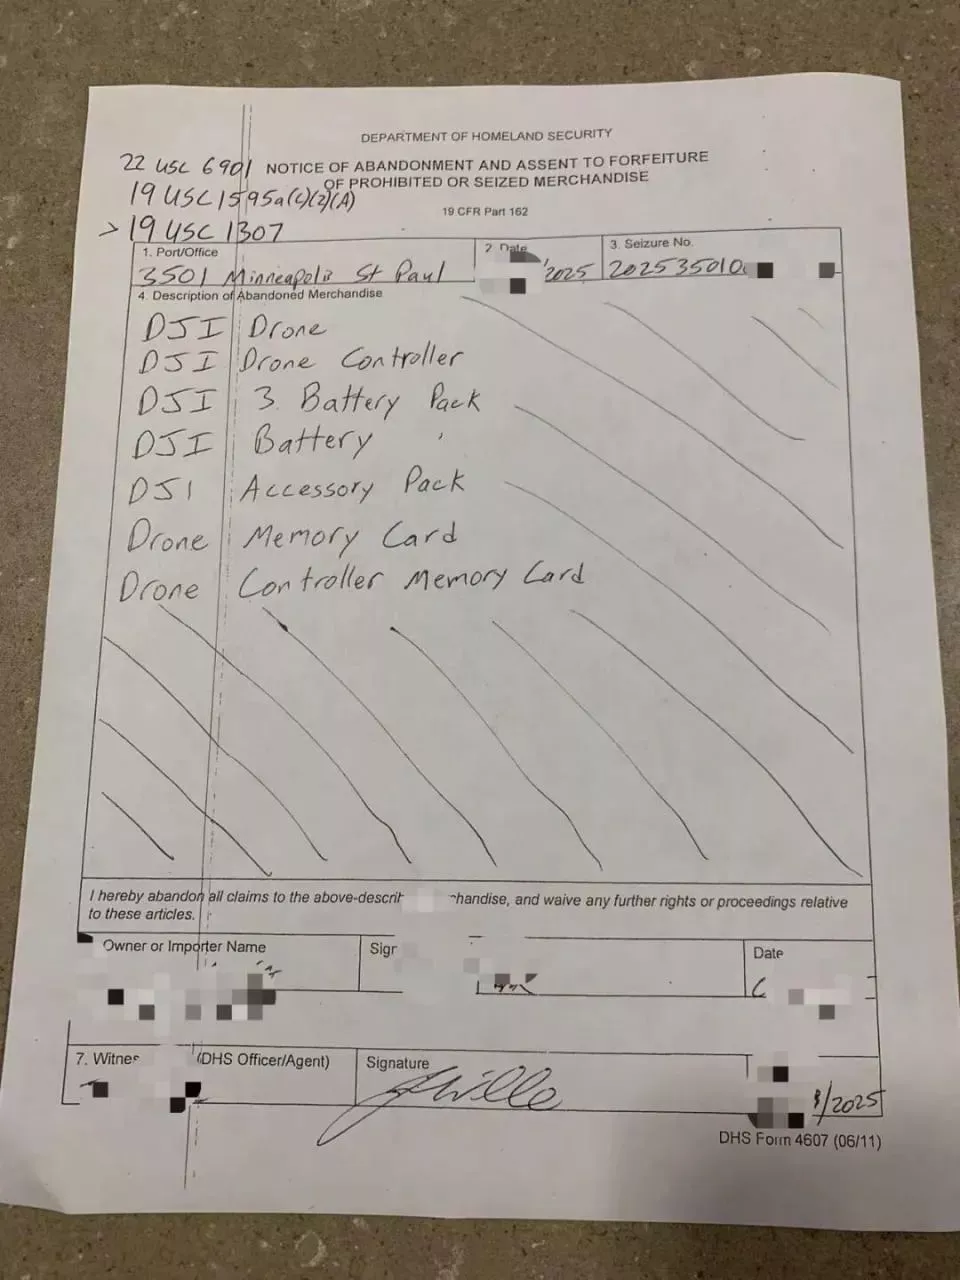 DEPARTMENT OF HOMELAND SECURITY
22 USC 6901 NOTICE OF ABANDONMENT AND ASSENT TO FORFEITURE
OF PROHIBITED OR SEIZED MERCHANDISE
19 USC 1595a(c)(2)(A)
19 CFR Part 162
> 19 USC 1307
1. Port/Office
3501 Minneapolis St Paul
2. Date
2025
3. Seizure No.
202535010
4. Description of Abandoned Merchandise
DJI Drone
DJI Drone Controller
DJI 3 Battery Pack
DJI Battery
DJI Accessory Pack
Drone Memory Card
Drone Controller Memory Card
I hereby abandon all claims to the above-descri handise, and waive any further rights or proceedings relative
to these articles.
Owner or Importer Name
Sign
Date
7. Witnes (DHS Officer/Agent)
Signature
/2025
DHS Form 4607 (06/11)